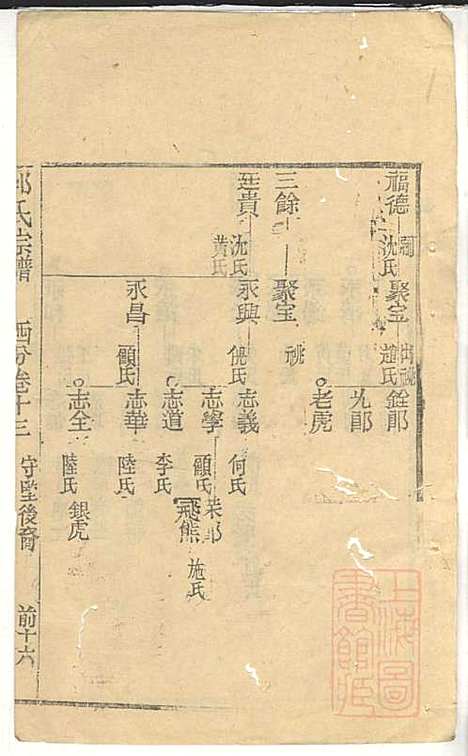 福德 嗣 沈氏 聚宝 出祧 趙氏 銓郎
九郎
老虎
三餘 聚宝 祧
廷貴 沈氏 黄氏 永興 倪氏 志義 何氏
志學 顧氏 荣郎 施氏
飛熊
志道 李氏
永昌 顧氏 志華 陸氏
志全 陸氏 銀虎
氏宗譜 西分卷十三 守堅後裔 前十六
上海圖書館藏